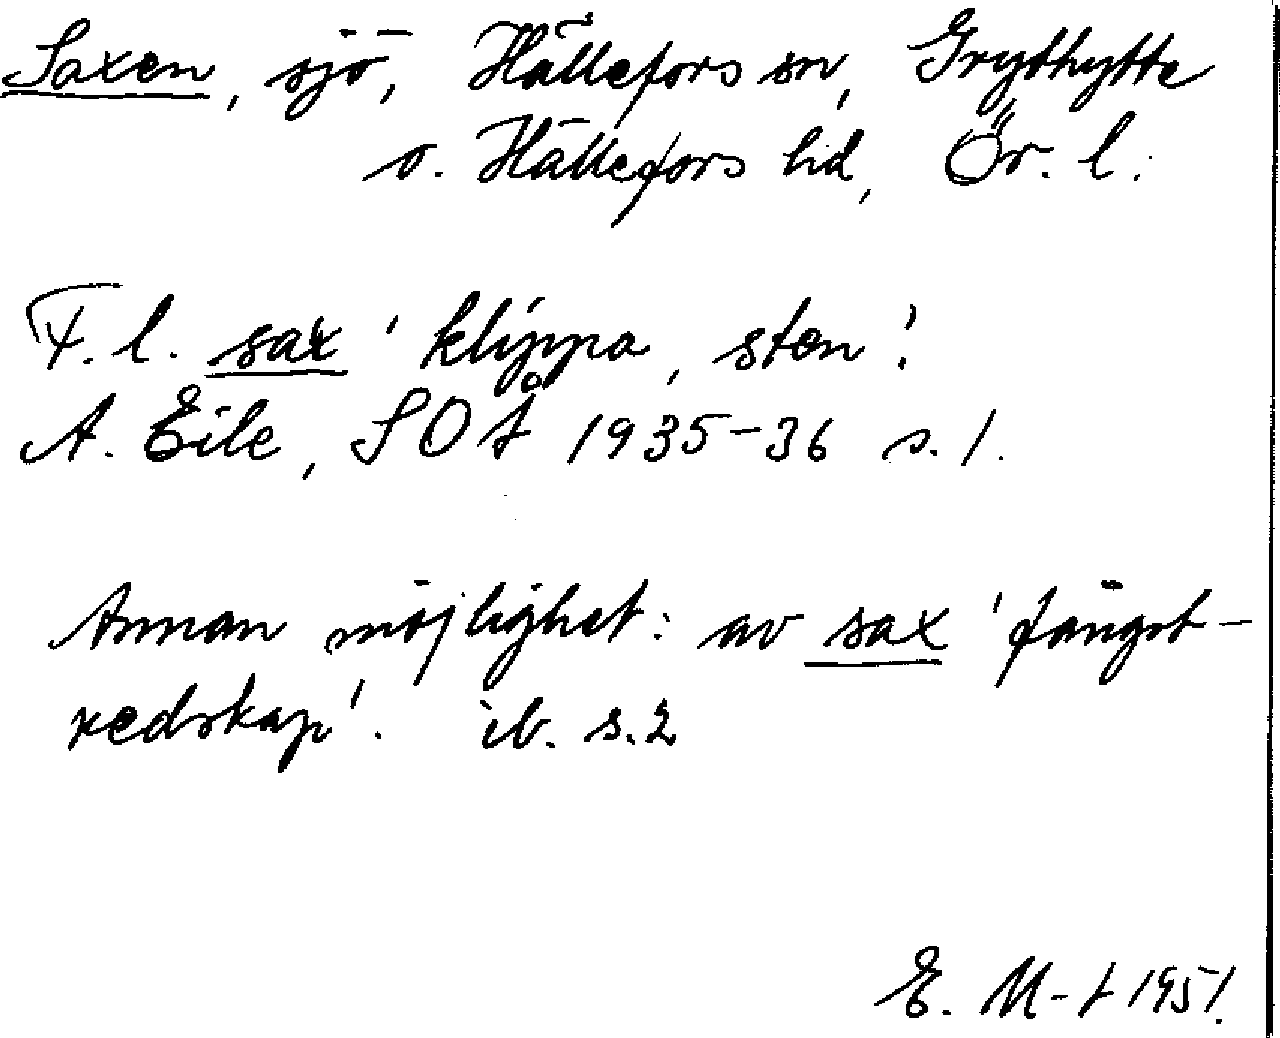 Saxen, sjö, Hällefors sn, Grythytte
o. Hällefors hd, Ör. l.
F. l. sax 'klippa, sten'.
A. Eile, SOÅ 1935-36 s. 1.
Annan möjlighet: av sax 'fångst-
redskap'. ib. s. 2
E. M-t 1951.